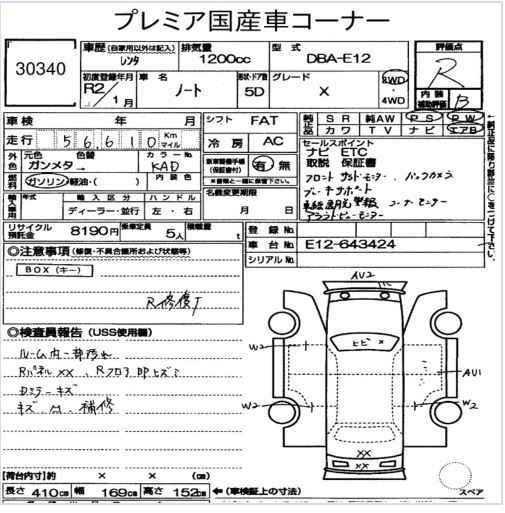 プレミア国産車コーナー
30340
車歴 (自家用以外は記入) レンタ
排気量 1200cc
型式 DBA-E12
評価点 R
初度登録年月 R2/1月
車名 ノート
形状・ドア数 5D
グレード X
2WD・4WD
内装補助評価 B
車検 年 月
シフト FAT
純正品 SR 純AW PS PW
カワ TV ナビ エアB
走行 56610 Km マイル
冷房 AC
セールスポイント
ナビ ETC
取説 保証書
外色 元色 ガンメタ 色替
カラーNo. KAD
新車整備手帳(保証書付) 有 無
燃料 ガソリン・軽油・( )
内装色
名義変更期限 月 日
フロント サイドモニター バックカメラ
コーナーモニター
アラウンドビューモニター
年式 輸入区分 ハンドル
ディーラー・並行 左・右
リサイクル預託金 8190円
乗車定員 5人
積載量 t
登録No.
車台No. E12-643424
シリアルNo.
◎注意事項 (修復・不具合箇所および状態等)
BOX(キー)
R修復了
◎検査員報告 (USS使用欄)
ルーム内一部汚れ
Rパネル××、Rフロア 即ヒズミ
Dミラーキズ
キズ 補修
AV2
W2
ヒビ×
AU1
W2
W2
××
××
【荷台内寸】約 × × (cm)
長さ 410cm 幅 169cm 高さ 152cm
←(車検証上の寸法)
スペア